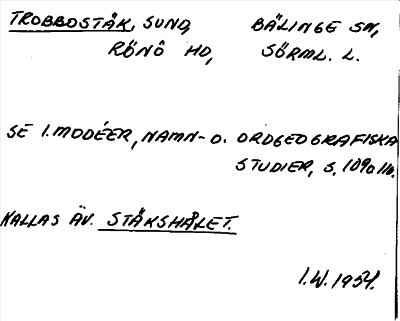 TROBBOSTÄK, SUND, BÄLINGE SN,
RÖNÖ HD, SÖRML. L.
SE I. MODÉER, NAMN- O. ORDGEOGRAFISKA
STUDIER, S. 109
KALLAS ÄV. STÄKSHÅLET.
I.W. 1954.